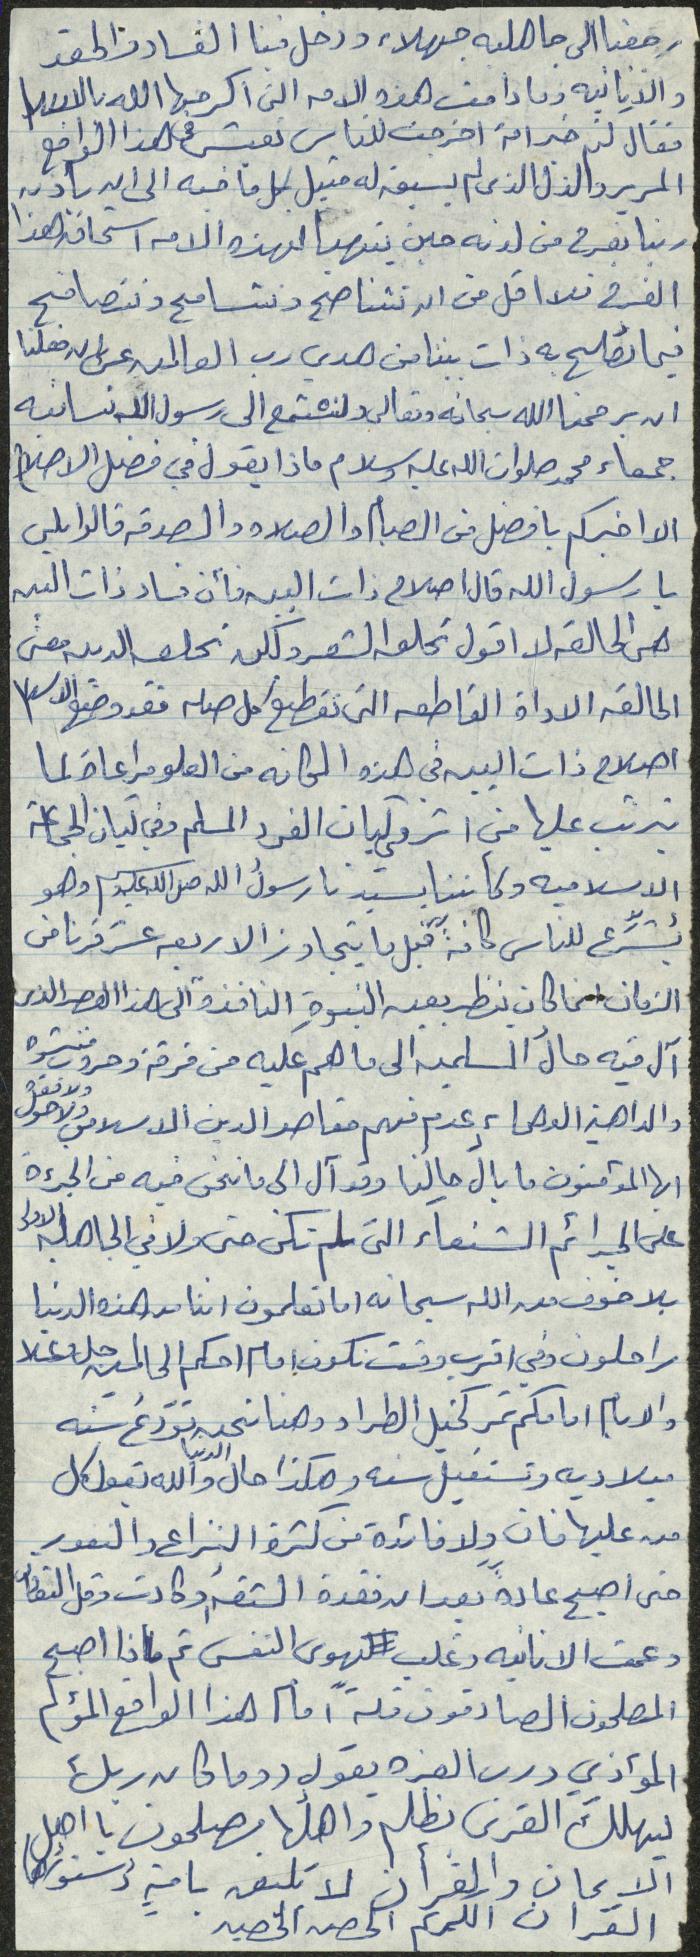 رجعنا الى جاهليه جهلاء ودخل فينا الفساد والحقد
والانانيه وما دامت هذه الامه التي اكرمها الله بالاسلام
فقال كنتم خير امة اخرجت للناس تعيش في هذا الواقع
المرير والذل الذي لم يسبق له مثيل بكل ما فيه الى ان يأذن
ربنا بفرج من لدنه حين يتهيأ لهذه الامه استحقاق هذا
الفرج فلا اقل من ان نتناصح ونتسامح ونتصافح
فيما نصلح به ذات بيننا من هدي رب العالمين عسى ان فعلنا
ان يرحمنا الله سبحانه وتعالى ولنستمع الى رسول الانسانيه
جمعاء محمد صلوات الله عليه وسلام ماذا يقول في فضل الاصلاح
الا اخبركم بافضل من الصيام والصلاه والصدقه قالوا بلى
يا رسول الله قال اصلاح ذات البين فأن فساد ذات البين
هي الحالقه لا اقول تحلق الشعر ولكن تحلق الدين معنى
الحالقه الاداة القاطعه التي تقطع كل صله فقد وضع الاسلام
اصلاح ذات البين في هذه المكانه من العلو مراعاة لما
يترتب عليها من اثر في كيان الفرد المسلم وفي كيان الجماعة
الاسلاميه وكأننا بسيدنا رسولُ الله صلى الله عليه وسلم وهو
يُشرِّع للناس كافةً قبل ما يتجاوز الاربعه عشر قرنا من
الزمان انما كان ينظر بعين النبوةِ النافذة الى هذا العصر الذي
آل فيه حالُ المسلمين الى ما هم عليه من فرقة وحروب منتشره
والداهية الدهماء عدم فهم مقاصد الدين الاسلامي ولا حول ولا قوة
ايها المؤمنون ما بالُ حالُنا وقد آل الى ما نحن فيه من الجرءة
على الجرائم الشنعاء التي لم تكن حتى ولا في الجاهليه الاولى
بلا خوف من الله سبحانه اما تعلمون اننا من هذه الدنيا
راحلون وفي اقرب وقت نكون امام احكم الحاكمين جل وعلا
والايام امامكم تمر كخيل الطراد وهنا نحن نودّعُ سنه
ميلاديه ونستقبل سنه وهكذا حال الدنيا والله تعول كل
من عليها فان ولا فائدة من كثرة النزاع والنفور
حتى اصبح عادةً بعد ان فقدة الثقةُ وكادت وقل التفاؤل
وعمت الانانيه وغلب الهوى النفس ثم ماذا اصبح
المصلحون الصادقون قلةً امام هذا الواقع المؤلم
المؤذي ورب العزه يقول (وما كان ربك
ليهلك القرى بظلم واهلها مصلحون يا اهل
الايمان والقرأن لا تليق بامةٍ دستورها
القرأن الكريم